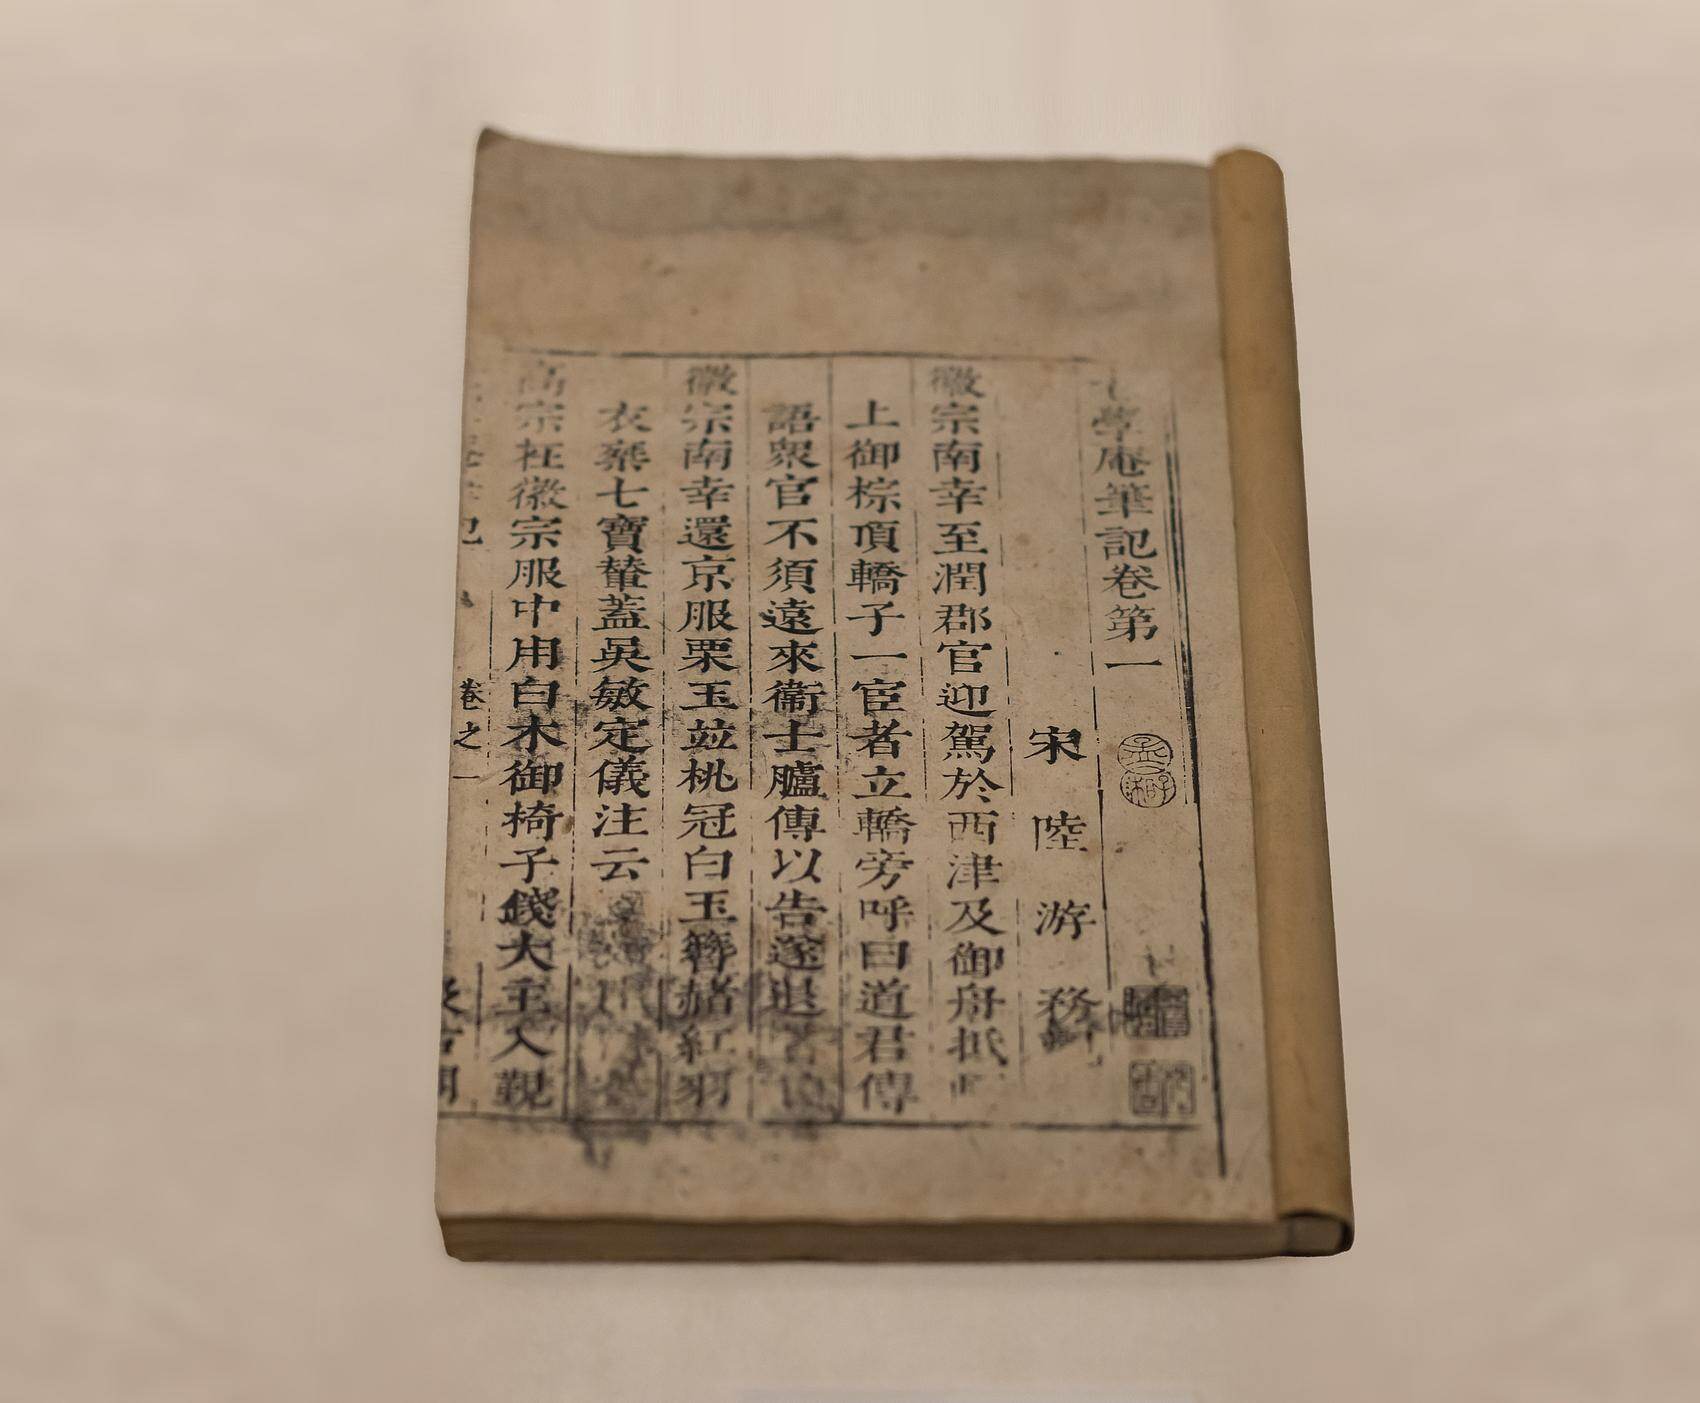 學庵筆記卷第一
宋 陸 游 務
徽宗南幸至潤郡官迎駕於西津及御舟抵
上御棕頂轎子一宦者立轎旁呼曰道君傳
語衆官不須遠來衞士臚傳以告遂退
徽宗南幸還京服栗玉並桃冠白玉簪赭紅羽
衣乘七寶輦蓋吳敏定儀注云
高宗在徽宗服中用白木御椅子錢大主入覲
記 卷之一